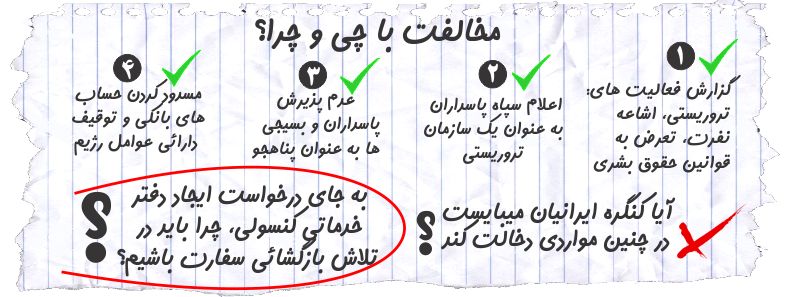 مخالفت با چی و چرا؟
۱
گزارش فعالیت های:
تروریستی، اشاعه
نفرت، تعرض به
قوانین حقوق بشری
۲
اعلام سپاه پاسداران
به عنوان یک سازمان
تروریستی
۳
عدم پذیرش
پاسداران و بسیجی
ها به عنوان پناهجو
۴
مسدود کردن حساب
های بانکی و توقیف
دارائی عوامل رژیم
آیا کنگره ایرانیان میبایست
در چنین مواردی دخالت کند
؟
به جای درخواست ایجاد دفتر
خدماتی کنسولی، چرا باید در
تلاش بازگشائی سفارت باشیم؟
؟